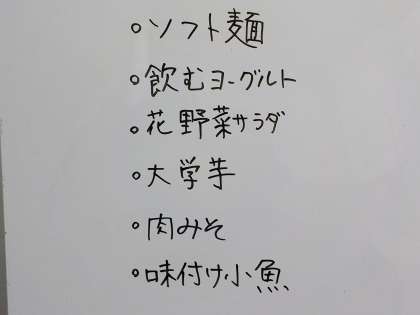 ○ソフト麺
○飲むヨーグルト
○花野菜サラダ
○大学芋
○肉みそ
○味付け小魚